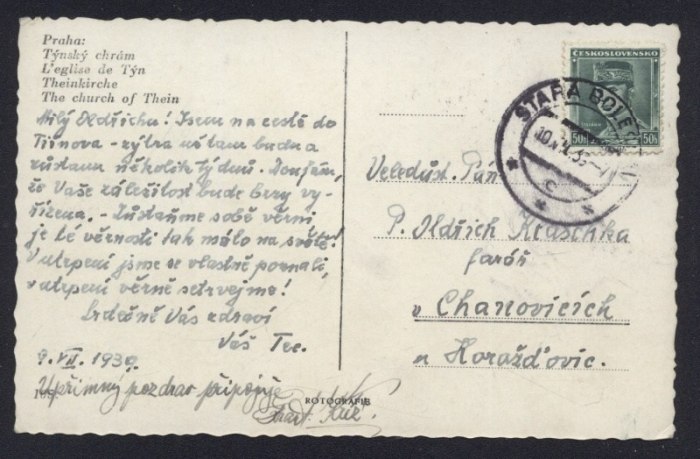 Praha:
Týnský chrám
L'eglise de Týn
Theinkirche
The church of Thein
Milý Oldřichu! Jsem na cestě do
Tišnova - zýtra už tam budu a
zůstanu několik týdnů. Doufám,
že Vaše záležitost bude brzy vy-
řízena. - Zůstaňme sobě věrni
je té věrnosti tak málo na světě!
V utrpení jsme se vlastně poznali,
v utrpení věrně setrvejme!
Srdečně Vás zdraví
Váš
9. VII. 193
Upřímný pozdrav připojuje
ROTOGRAFIE
ČESKOSLOVENSKO
50h 50h
STARÁ BOLE
Veledůst. Pán
P. Oldřich Kraschka
farář
v Chanovicích
u Horažďovic.